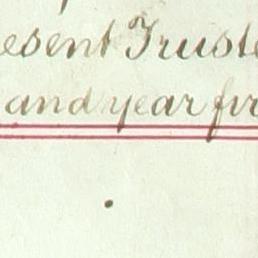 esent Truste
and year fir